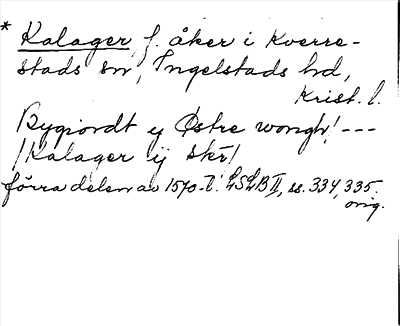 * Kalager f. åker i Kverre-
stads sn, Ingelstads hd,
Krist. l.
Bygiordt ij Østre wongh! ---
/Kalager ij skr/
förra delen av 1570-t. LSLB II, ss. 334, 335.
orig.